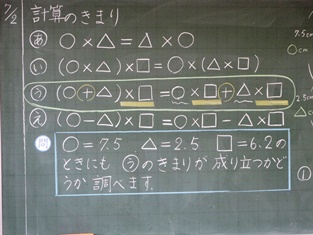 7/2 計算のきまり
あ ○×△=△×○
い (○×△)×□=○×(△×□)
う (○+△)×□=○×□+△×□
え (○-△)×□=○×□-△×□
問 ○=7.5 △=2.5 □=6.2の
ときにも うのきまりが 成り立つかど
うか 調べます。
7.5
○cm
2.5cm